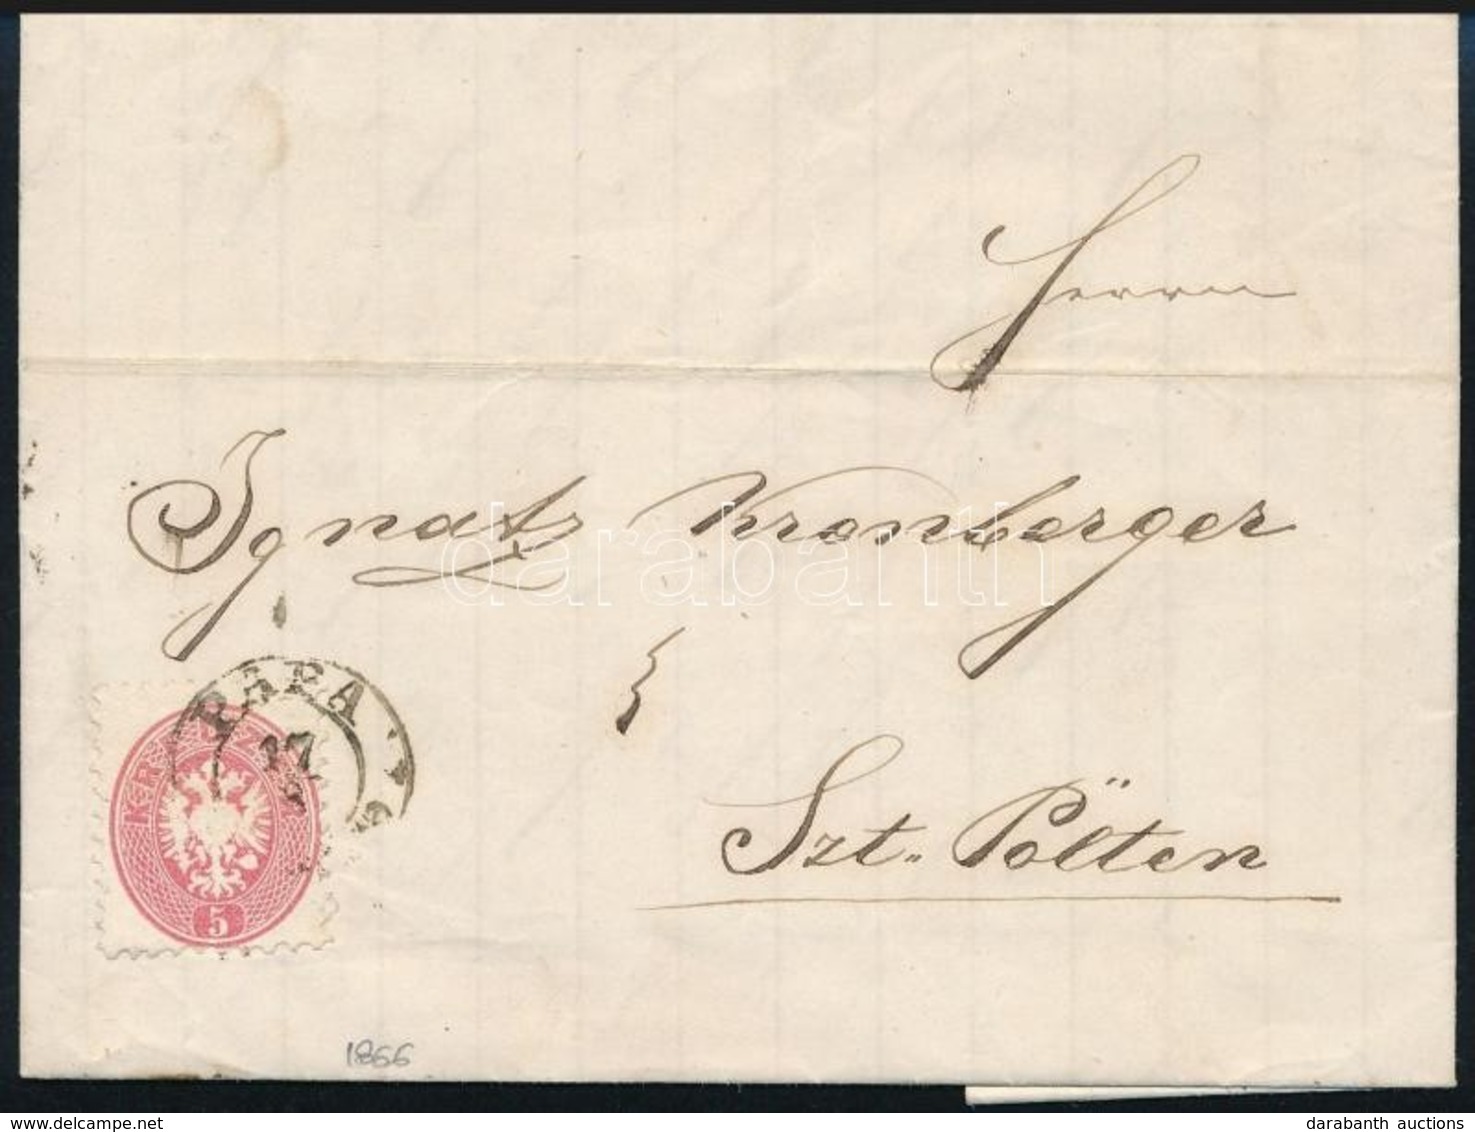 Herrn
Ignatz Kronberger
Szt. Pölten
PÁPA
17
KREUZER
5
1866
darabanth
delcampe.net
darabanth auctions